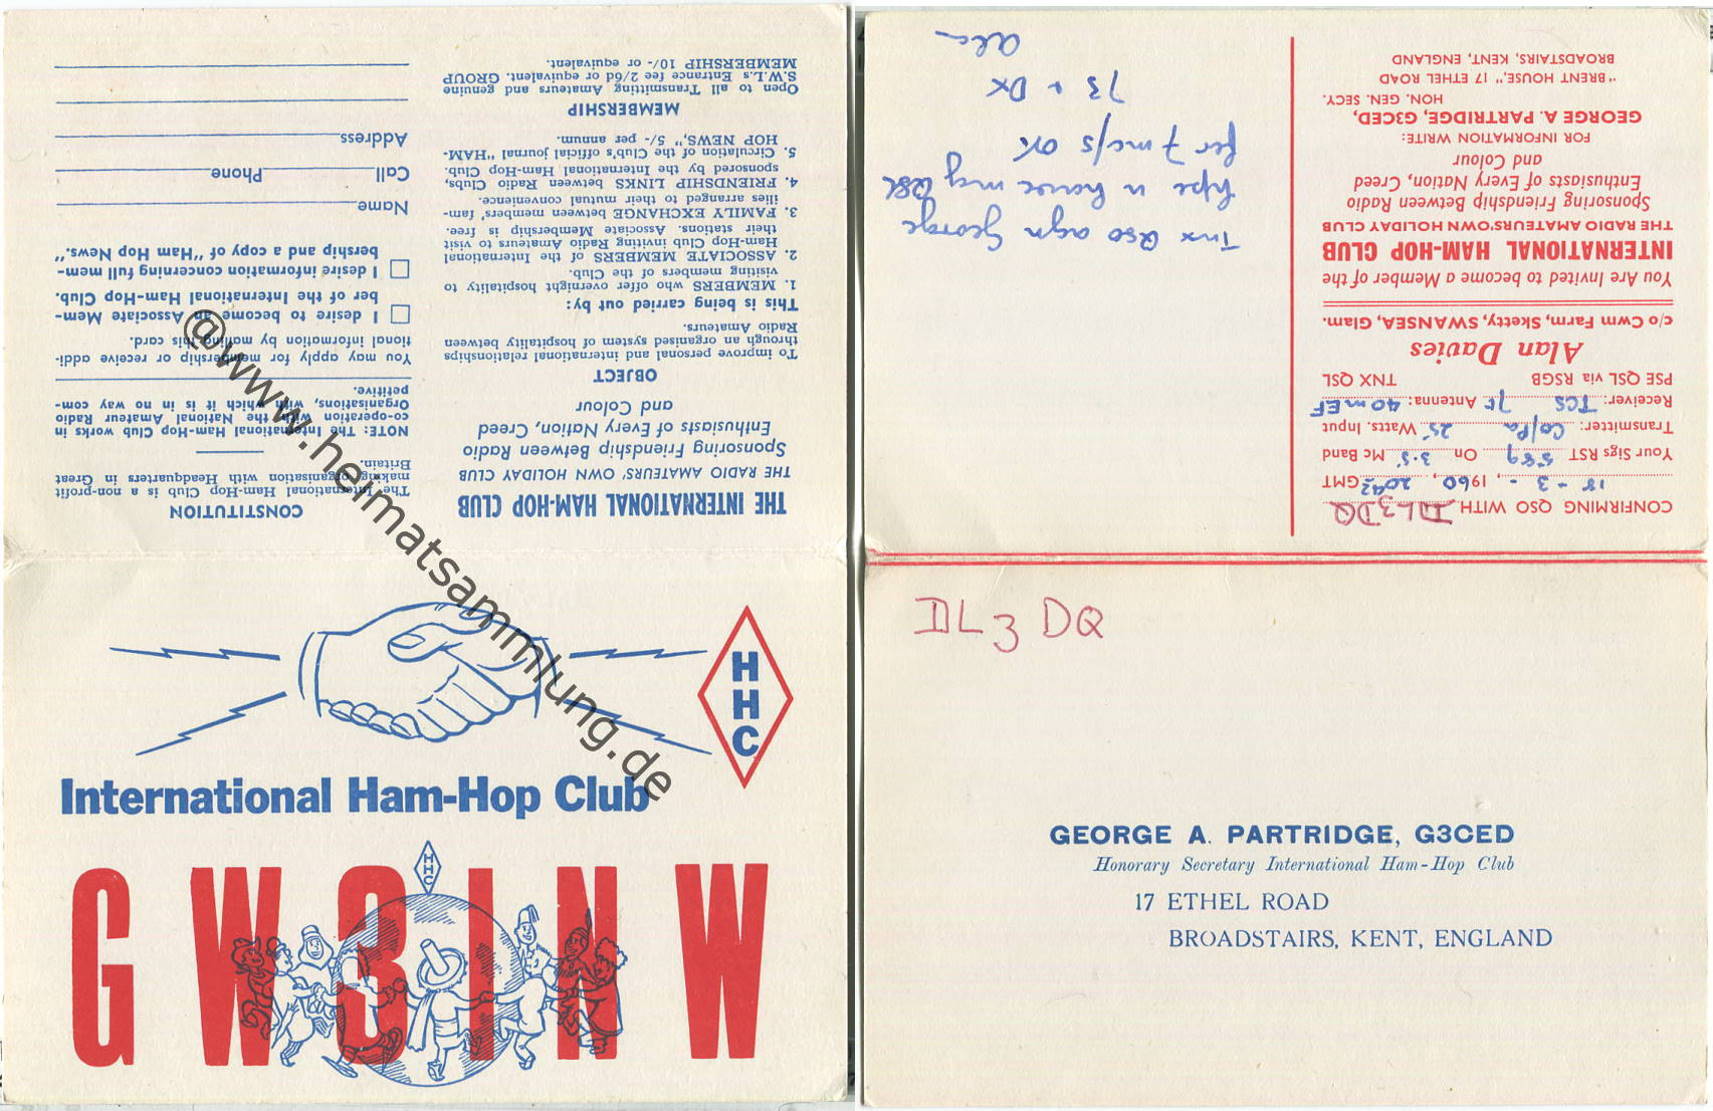 THE INTERNATIONAL HAM-HOP CLUB
THE RADIO AMATEURS' OWN HOLIDAY CLUB
Sponsoring Friendship Between Radio
Enthusiasts of Every Nation, Creed
and Colour
OBJECT
To improve personal and international relationships
through an organised system of hospitality between
Radio Amateurs.
This is being carried out by:
1. MEMBERS who offer overnight hospitality to
visiting members of the Club.
2. ASSOCIATE MEMBERS of the International
Ham-Hop Club inviting Radio Amateurs to visit
their stations. Associate Membership is free.
3. FAMILY EXCHANGE between members' fam-
ilies arranged to their mutual convenience.
4. FRIENDSHIP LINKS between Radio Clubs,
sponsored by the International Ham-Hop Club.
5. Circulation of the Club's official journal "HAM-
HOP NEWS," 5/- per annum.
MEMBERSHIP
Open to all Transmitting Amateurs and genuine
S.W.L.s Entrance fee 2/6d or equivalent. GROUP
MEMBERSHIP 10/- or equivalent.
CONSTITUTION
The International Ham-Hop Club is a non-profit
making organisation with Headquarters in Great
Britain.
NOTE: The International Ham-Hop Club works in
co-operation with the National Amateur Radio
Organisations, with which it is in no way com-
petitive.
You may apply for membership or receive addi-
tional information by mailing this card.
I desire to become an Associate Mem-
ber of the International Ham-Hop Club.
I desire information concerning full mem-
bership and a copy of "Ham Hop News."
Name
Call Phone
Address
HHC
International Ham-Hop Club
HHC
GW3INW
@www.heimatsammlung.de
CONFIRMING QSO WITH DL3DQ
18 - 3 - , 1960, 2043 GMT
Your Sigs RST 589 On 3.5 Mc Band
Transmitter: Co/Pa 25 Watts. Input
Receiver: TCS Antenna: 40m EF
PSE QSL via RSGB TNX QSL
Alan Davies
c/o Cwm Farm, Sketty, SWANSEA, Glam.
You Are Invited to become a Member of the
INTERNATIONAL HAM-HOP CLUB
THE RADIO AMATEURS' OWN HOLIDAY CLUB
Sponsoring Friendship Between Radio
Enthusiasts of Every Nation, Creed
and Colour
FOR INFORMATION WRITE:
GEORGE A. PARTRIDGE, G3CED,
HON. GEN. SECY.
"BRENT HOUSE," 17 ETHEL ROAD
BROADSTAIRS, KENT, ENGLAND
Tnx QSO agn George
hpe u have my QSL
fer 7 mc/s OK
73 + DX
Alan
DL3DQ
GEORGE A. PARTRIDGE, G3CED
Honorary Secretary International Ham-Hop Club
17 ETHEL ROAD
BROADSTAIRS, KENT, ENGLAND